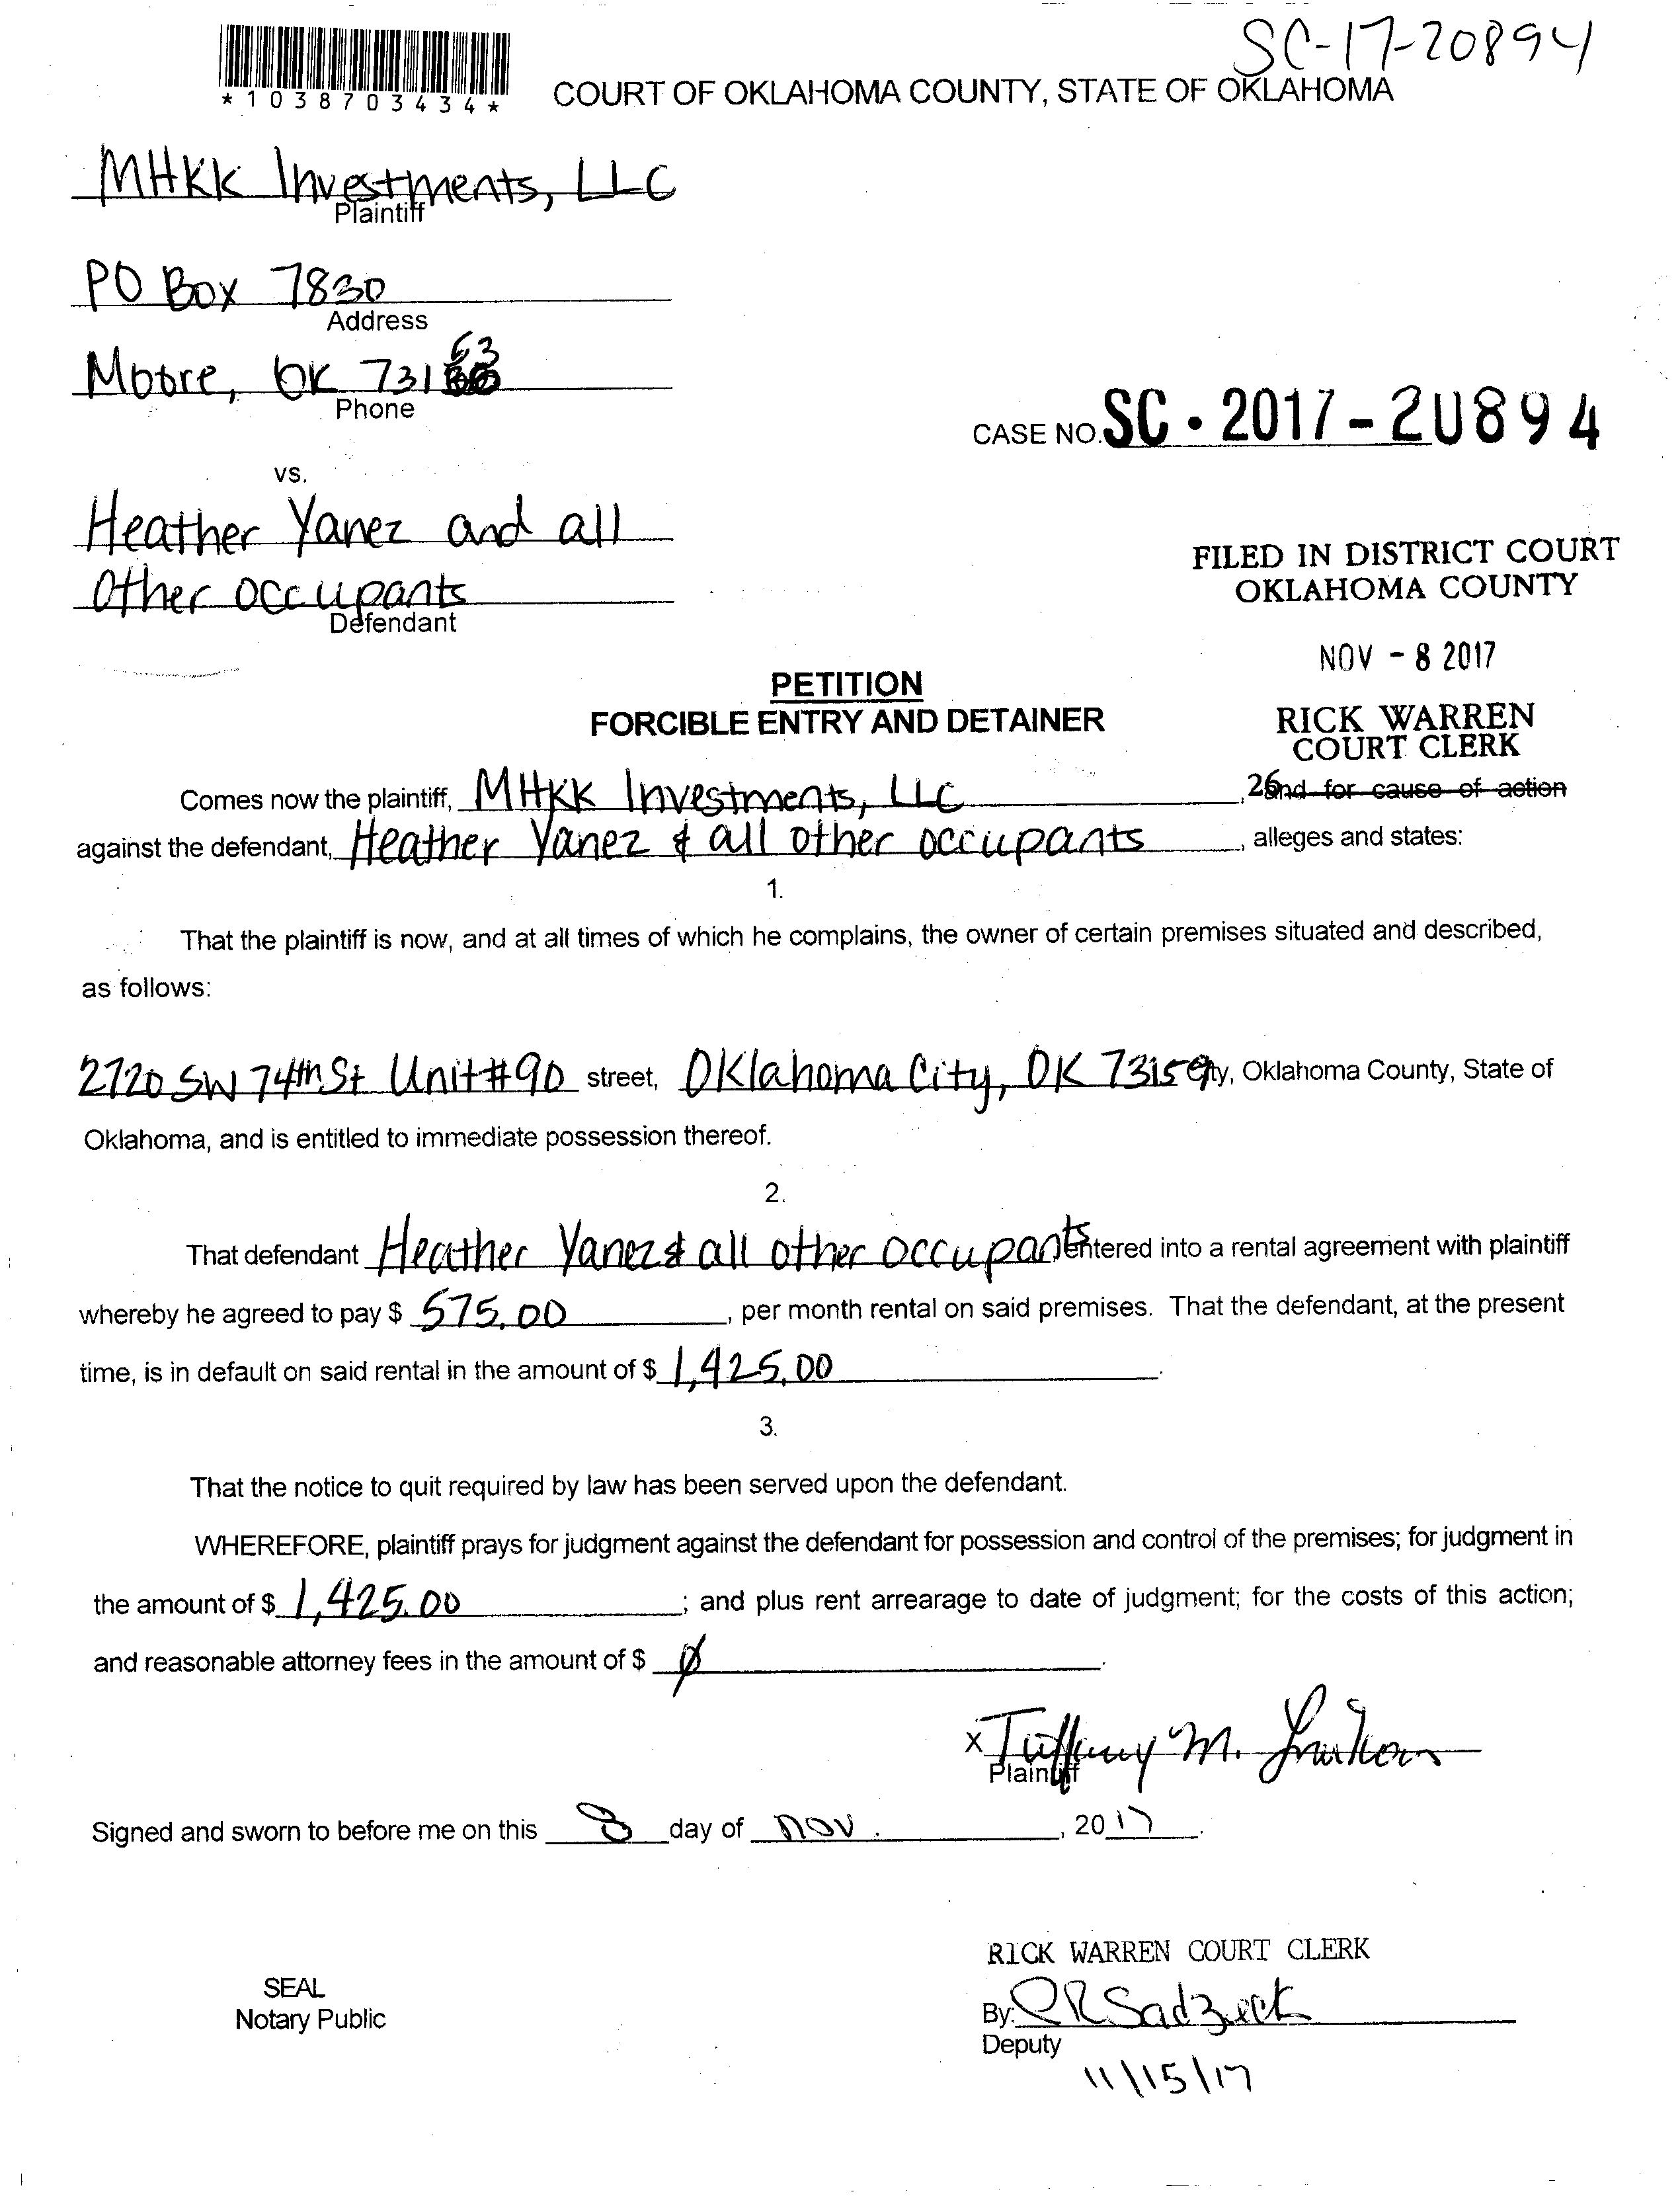 SC-17-20894
*1038703434*
COURT OF OKLAHOMA COUNTY, STATE OF OKLAHOMA
MHKK Investments, LLC
Plaintiff
PO Box 7830
Address
63
Moore, OK 731
Phone
CASE NO. SC · 2017 - 20894
vs.
Heather Yanez and all
Other occupants
Defendant
FILED IN DISTRICT COURT
OKLAHOMA COUNTY
NOV - 8 2017
PETITION
FORCIBLE ENTRY AND DETAINER
RICK WARREN
COURT CLERK
Comes now the plaintiff, MHKK Investments, LLC, 26nd for cause of action
against the defendant, Heather Yanez & all other occupants, alleges and states:
1.
That the plaintiff is now, and at all times of which he complains, the owner of certain premises situated and described,
as follows:
2720 SW 74th St Unit #90 street, Oklahoma City, OK 73159 ty, Oklahoma County, State of
Oklahoma, and is entitled to immediate possession thereof.
2.
That defendant Heather Yanez & all other occupants entered into a rental agreement with plaintiff
whereby he agreed to pay $ 575.00, per month rental on said premises. That the defendant, at the present
time, is in default on said rental in the amount of $ 1,425.00.
3.
That the notice to quit required by law has been served upon the defendant.
WHEREFORE, plaintiff prays for judgment against the defendant for possession and control of the premises; for judgment in
the amount of $ 1,425.00; and plus rent arrearage to date of judgment; for the costs of this action;
and reasonable attorney fees in the amount of $ Ø.
x Tiffany M.
Plaintiff
Signed and sworn to before me on this 8 day of Nov., 2017.
RICK WARREN COURT CLERK
SEAL
Notary Public
By:
Deputy
11/15/17